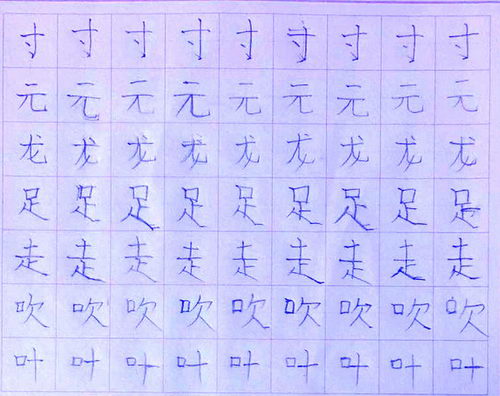 寸寸寸寸寸寸寸寸寸
元元元元元元元元元
龙龙龙龙龙龙龙龙龙
足足足足足足足足足
走走走走走走走走走
吹吹吹吹吹吹吹吹吹
叶叶叶叶叶叶叶叶叶